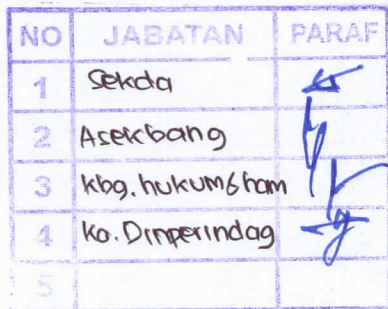 NO JABATAN PARAF
1 Sekda
2 Asekbang
3 kbg. hukum & ham
4 Ka. Dinperindag
5